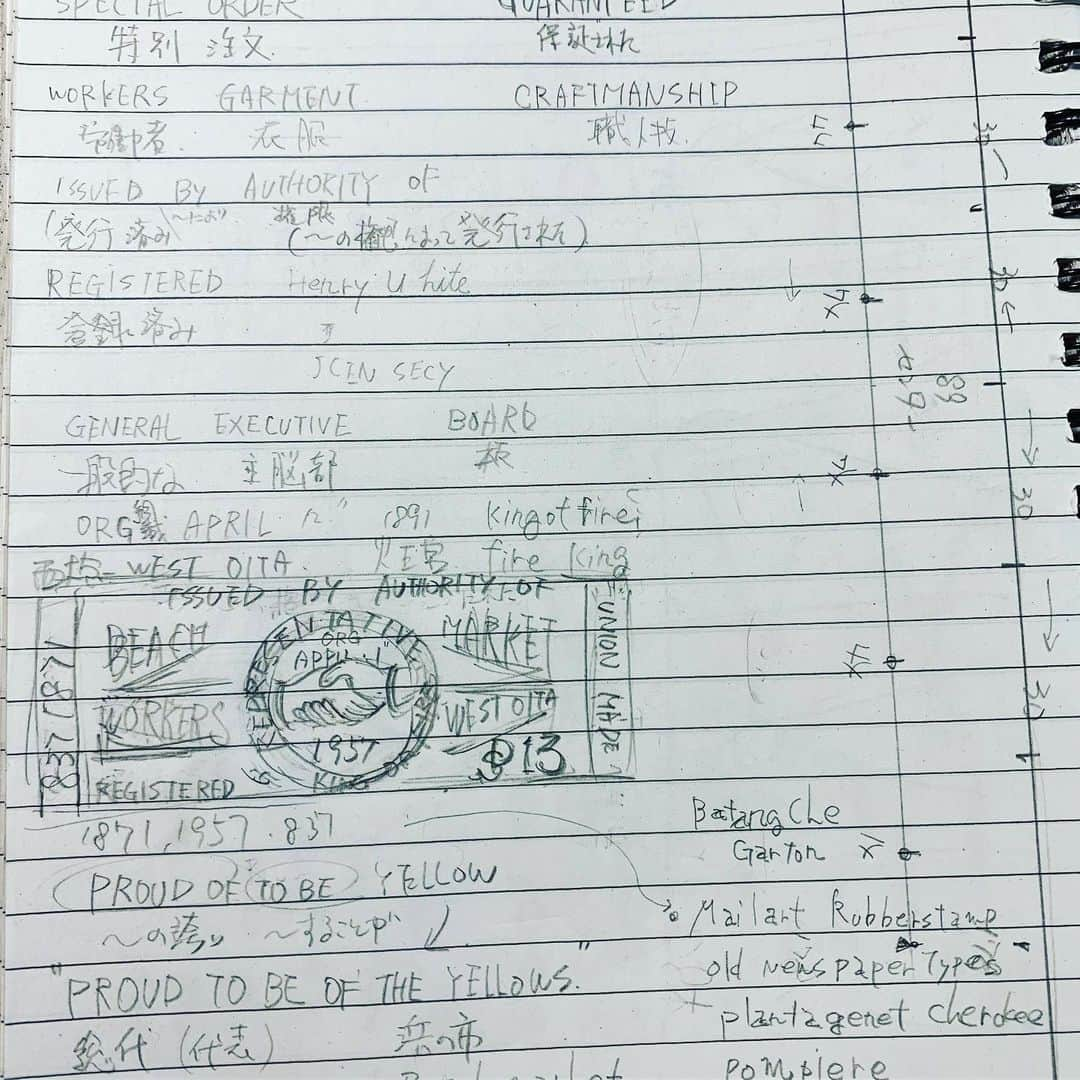 SPECIAL ORDER GUARANTEED
特別 注文 保証された
WORKERS GARMENT CRAFTMANSHIP
労働者. 衣服 職人技.
ISSUED BY AUTHORITY OF
発行済み 〜により 権限 (〜の権限によって発行された)
REGISTERED Henry White
登録済み
JOIN SECY
GENERAL EXECUTIVE BOARD
一般的な 主脳部 板
ORG APRIL 12" 1891 king of fire
WEST OITA. 火王宮 fire king
ISSUED BY AUTHORITY OF
837/1871
BEACH
WORKERS
REGISTERED
REPRESENTATIVE
ORG
APRIL.1"
1957
KING OF
MARKET
WEST OITA
$13
UNION MADE
1871, 1957. 837
PROUD OF TO BE YELLOW
〜の誇り 〜することが
"PROUD TO BE OF THE YELLOWS."
総代 (代表) 浜の市
Batang Che
Garton
Mailart Rubberstamp
old Newspaper Types
plantagenet cherokee
POMPIERE
30
30
センター
89
30
30